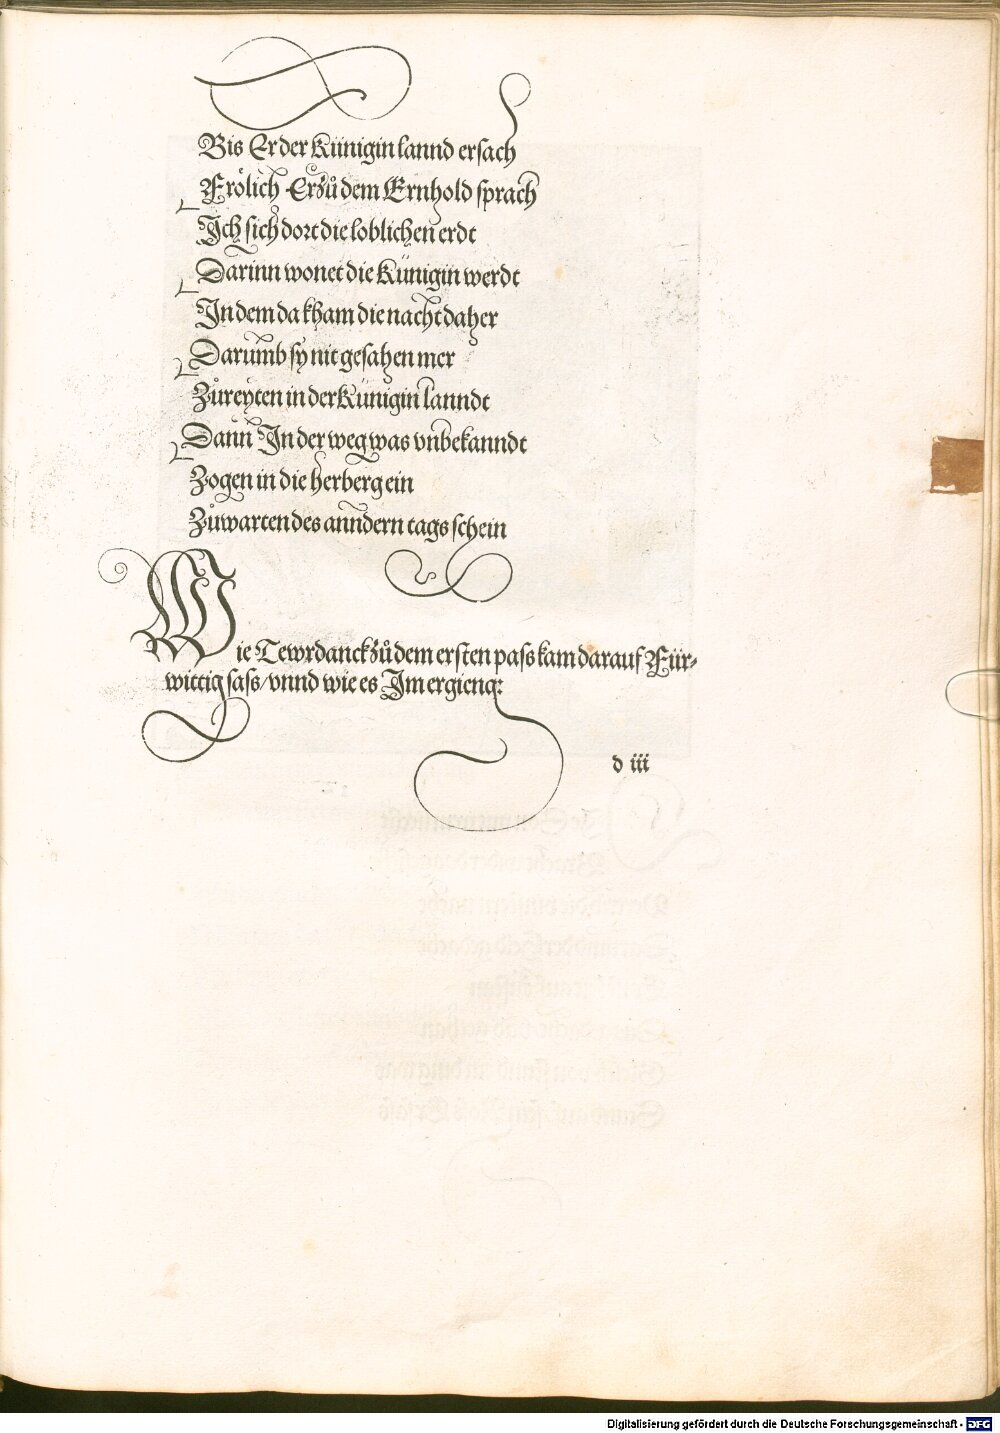 Bis Er der Künigin lannd ersach
Frölich Er zů dem Ernhold sprach
Ich sich dort die loblichen erdt
Darinn wonet die Künigin werdt
In dem da kham die nacht daher
Darumb sy nit gesahen mer
Zůreyten in der Künigin lanndt
Dann In der weg was vnbekanndt
Zogen in die herberg ein
Zůwarten des anndern tags schein
Wie Tewrdanck zů dem ersten pass kam darauf Für-
wittig sass/vnnd wie es Im ergieng:
d iii
Digitalisierung gefördert durch die Deutsche Forschungsgemeinschaft - DFG